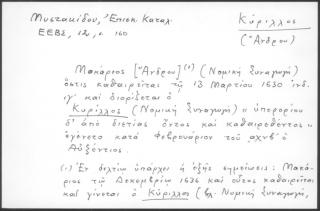 Μυστακίδου, Ἐπισκ. Καταλ.
ΕΕΒΣ, 12, σ. 160
Κύριλλος
(Ἄνδρου)
Μακάριος [Ἄνδρου](1) (Νομική Συναγωγή)
ὅστις καθαιρεῖται τῇ 13 Μαρτίου 1630 ἰνδ.
ιγ΄ καί διορίζεται ὁ
Κύριλλος (Νομική Συναγωγή) "ὑπερορίου
δ' ἀπό διετίας ὄντος καί καθαιρεθέντος"
ἐγένετο κατά Φεβρουάριον τοῦ ͵αχνβ΄ ὁ
Αὐξέντιος.
(1) Ἐν δελτίῳ ὑπάρχει ἡ ἑξῆς σημείωσις: Μακά-
ριος τῇ Δεκεμβρίῳ 1636 καί οὗτος καθαιρεῖται
καί γίνεται ὁ Κύριλλος (βλ. Νομική Συναγωγή,